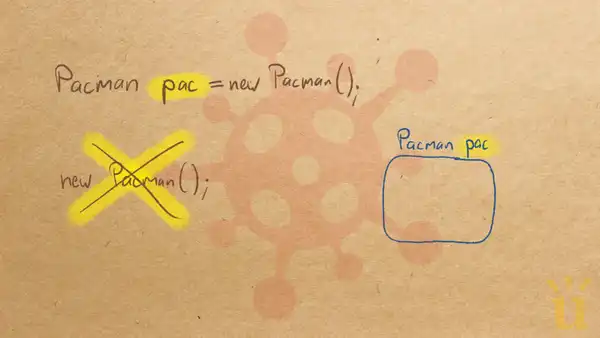 Pacman pac = new Pacman();
new Pacman();
Pacman pac